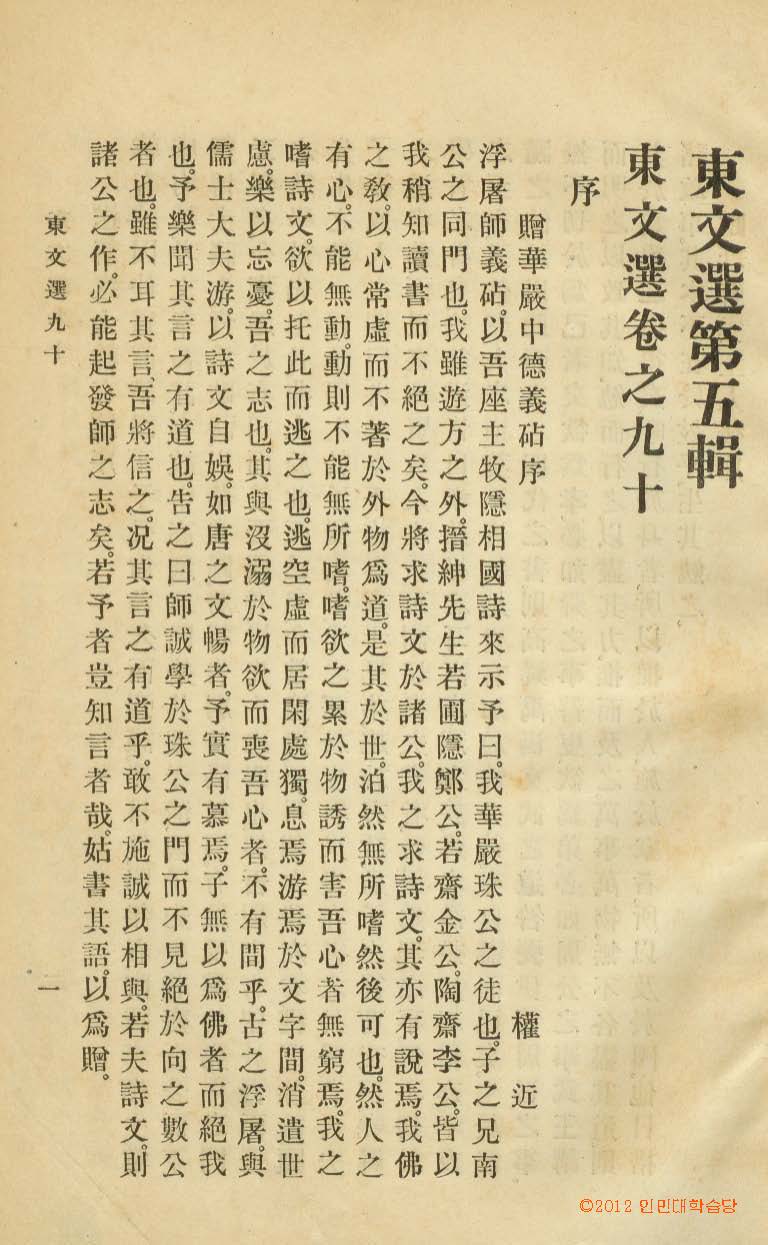 東文選第五輯
東文選卷之九十
序
贈華嚴中德義砧序 權近
浮屠師義砧。以吾座主牧隱相國詩來示予曰。我華嚴珠公之徒也。子之兄南
公之同門也。我雖遊方之外。搢紳先生若圃隱鄭公。若齋金公。陶齋李公。皆以
我稍知讀書而不絕之矣。今將求詩文於諸公。我之求詩文。其亦有說焉。我佛
之敎。以心常虛而不著於外物爲道。是其於世。泊然無所嗜然後可也。然人之
有心。不能無動。動則不能無所嗜。嗜欲之累於物誘而害吾心者無窮焉。我之
嗜詩文。欲以托此而逃之也。逃空虛而居閑處獨。息焉游焉於文字間。消遣世
慮。樂以忘憂。吾之志也。其與沒溺於物欲而喪吾心者。不有間乎。古之浮屠。與
儒士大夫游。以詩文自娛。如唐之文暢者。予實有慕焉。子無以爲佛者而絕我
也。予樂聞其言之有道也。告之曰師誠學於珠公之門而不見絕於向之數公
者也。雖不耳其言、吾將信之。况其言之有道乎。敢不施誠以相與。若夫詩文。則
諸公之作。必能起發師之志矣。若予者豈知言者哉。姑書其語。以爲贈。
東文選九十
一
©2012 인민대학습당